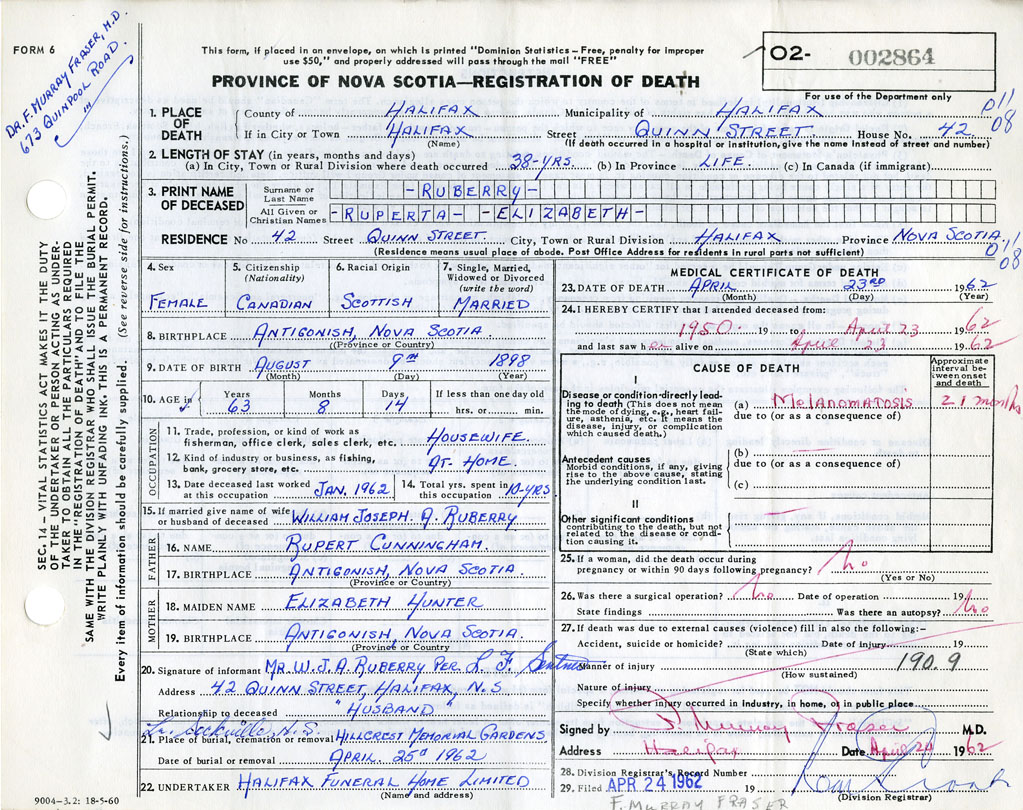 FORM 6
DR. F. MURRAY FRASER, M.D.
673 QUINPOOL ROAD
This form, if placed in an envelope, on which is printed "Dominion Statistics – Free, penalty for improper
use $50," and properly addressed will pass through the mail "FREE"
PROVINCE OF NOVA SCOTIA—REGISTRATION OF DEATH
02- 002864
For use of the Department only
1. PLACE OF DEATH County of HALIFAX Municipality of HALIFAX
If in City or Town HALIFAX Street QUINN STREET House No. 42
(Name) (If death occurred in a hospital or institution, give the name instead of street and number)
011
08
2. LENGTH OF STAY (in years, months and days)
(a) In City, Town or Rural Division where death occurred 38-YRS. (b) In Province LIFE. (c) In Canada (if immigrant)
3. PRINT NAME OF DECEASED Surname or Last Name -RUBERRY-
All Given or Christian Names -RUPERTA- -ELIZABETH-
RESIDENCE No 42 Street QUINN STREET. City, Town or Rural Division HALIFAX Province NOVA SCOTIA.
(Residence means usual place of abode. Post Office Address for residents in rural parts not sufficient)
011
08
4. Sex FEMALE
5. Citizenship (Nationality) CANADIAN
6. Racial Origin SCOTTISH
7. Single, Married, Widowed or Divorced (write the word) MARRIED
8. BIRTHPLACE ANTIGONISH, NOVA SCOTIA
(Province or Country)
9. DATE OF BIRTH AUGUST 9TH 1898
(Month) (Day) (Year)
10. AGE in Years 63 Months 8 Days 14 If less than one day old
hrs. or min.
OCCUPATION
11. Trade, profession, or kind of work as
fisherman, office clerk, sales clerk, etc. HOUSEWIFE.
12. Kind of industry or business, as fishing,
bank, grocery store, etc. AT HOME.
13. Date deceased last worked at this occupation JAN. 1962
14. Total yrs. spent in this occupation 10-YRS
15. If married give name of wife or husband of deceased WILLIAM JOSEPH. A. RUBERRY
FATHER
16. NAME RUPERT CUNNINGHAM.
17. BIRTHPLACE ANTIGONISH, NOVA SCOTIA.
(Province or Country)
MOTHER
18. MAIDEN NAME ELIZABETH HUNTER
19. BIRTHPLACE ANTIGONISH, NOVA SCOTIA.
(Province or Country)
20. Signature of informant MR. W.J.A RUBERRY PER. L. F.
Address 42 QUINN STREET, HALIFAX, N.S.
Relationship to deceased "HUSBAND"
Lr. Sackville N.S.
21. Place of burial, cremation or removal HILLCREST MEMORIAL GARDENS
Date of burial or removal APRIL. 25d 1962
22. UNDERTAKER HALIFAX FUNERAL HOME LIMITED
(Name and address)
9004-3.2: 18-5-60
MEDICAL CERTIFICATE OF DEATH
23. DATE OF DEATH APRIL 23RD 1962
(Month) (Day) (Year)
24. I HEREBY CERTIFY that I attended deceased from:
1950. 19 to April 23 1962
and last saw her alive on April 23 1962
CAUSE OF DEATH
Approximate interval between onset and death
I
Disease or condition directly leading to death (This does not mean the mode of dying, e.g., heart failure, asthenia, etc. It means the disease, injury, or complication which caused death.)
(a) MELANOMATOSIS 21 months
due to (or as a consequence of)
Antecedent causes
Morbid conditions, if any, giving rise to the above cause, stating the underlying condition last.
(b)
due to (or as a consequence of)
(c)
II
Other significant conditions
contributing to the death, but not related to the disease or condition causing it.
25. If a woman, did the death occur during
pregnancy or within 90 days following pregnancy? No
(Yes or No)
26. Was there a surgical operation? No Date of operation 19
State findings Was there an autopsy? No
27. If death was due to external causes (violence) fill in also the following:–
Accident, suicide or homicide? Date of injury 19
(State which)
Manner of injury 190.9
(How sustained)
Nature of injury
Specify whether injury occurred in industry, in home, or in public place
Signed by F. Murray Fraser M.D.
Address Halifax Date April 24 1962
28. Division Registrar's Record Number
29. Filed APR 24 1962 19
(Division Registrar)
F. MURRAY FRASER
SEC. 14 – VITAL STATISTICS ACT MAKES IT THE DUTY
OF THE UNDERTAKER OR PERSON ACTING AS UNDER-
TAKER TO OBTAIN ALL THE PARTICULARS REQUIRED
IN THE "REGISTRATION OF DEATH" AND TO FILE THE
SAME WITH THE DIVISION REGISTRAR WHO SHALL ISSUE THE BURIAL PERMIT.
WRITE PLAINLY WITH UNFADING INK. THIS IS A PERMANENT RECORD.
Every item of information should be carefully supplied. (See reverse side for instructions.)